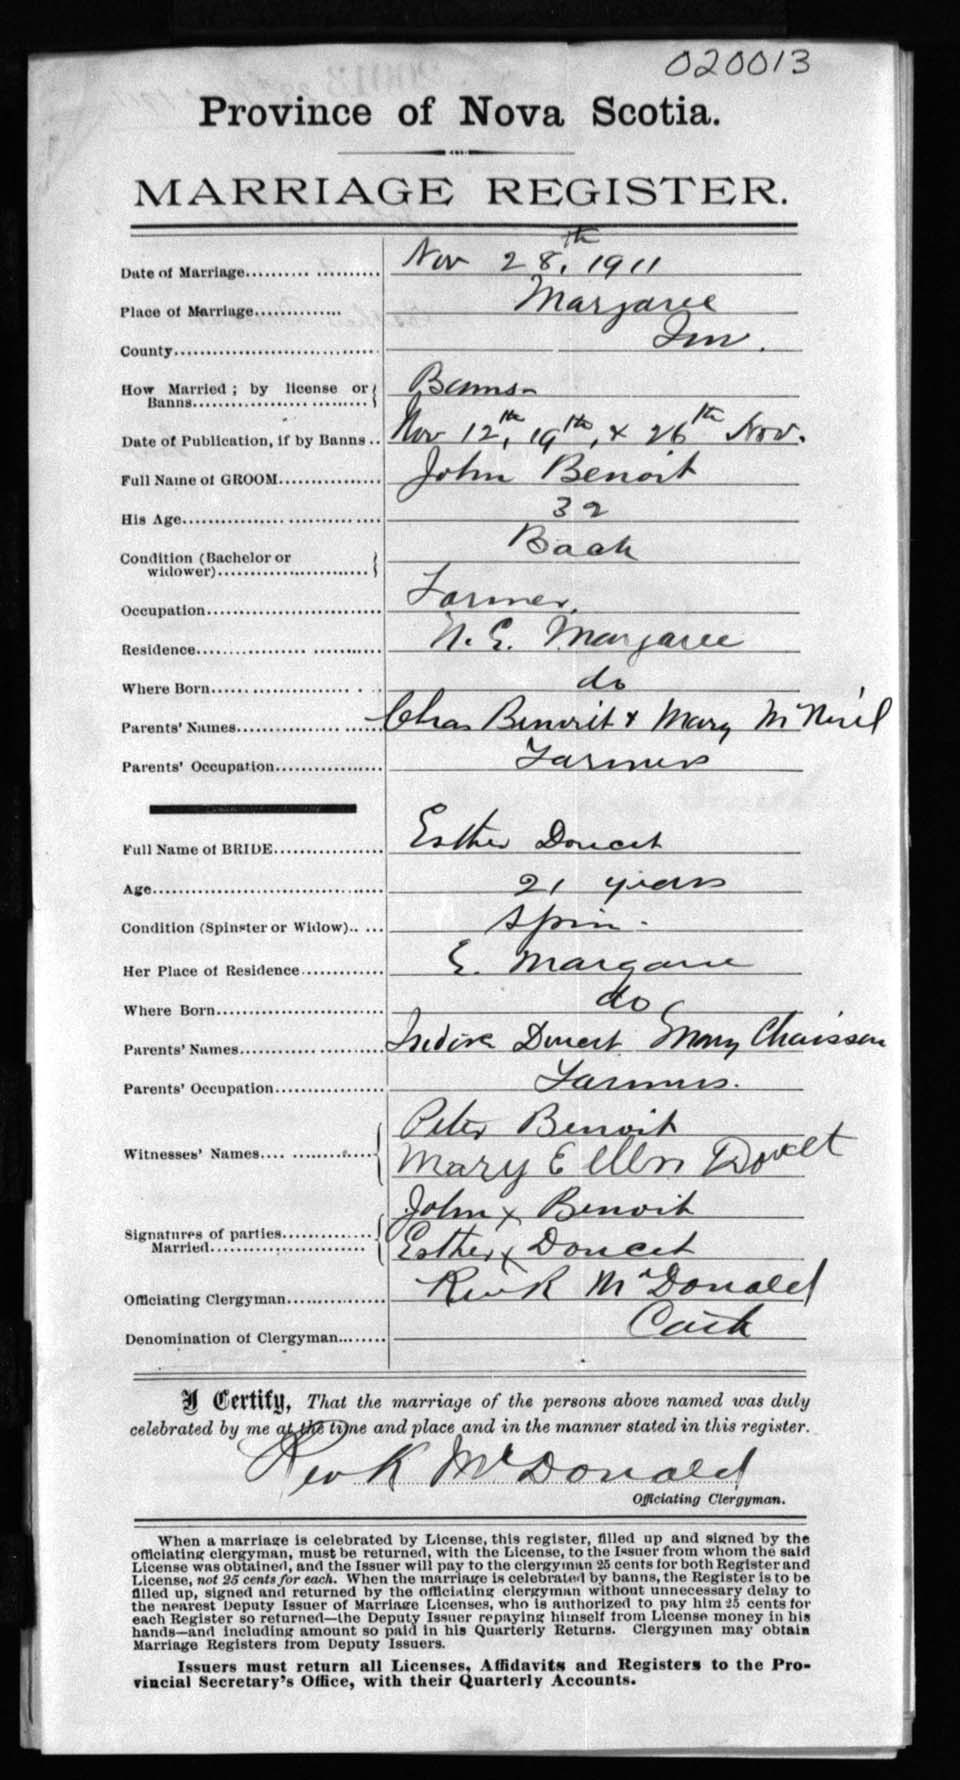 020013
Province of Nova Scotia.
MARRIAGE REGISTER.
Date of Marriage Nov 28th, 1911
Place of Marriage Margaree
County Inv.
How Married ; by license or Banns Banns
Date of Publication, if by Banns Nov 12th, 19th, & 26th Nov.
Full Name of GROOM John Benoit
His Age 32
Condition (Bachelor or widower) Bach
Occupation Farmer
Residence N. E. Margaree
Where Born do
Parents' Names Chas Benoit & Mary McNeil
Parents' Occupation Farmers
Full Name of BRIDE Esther Doucet
Age 21 years
Condition (Spinster or Widow) Spin.
Her Place of Residence E. Margaree
Where Born do
Parents' Names Doucet Mary Chaisson
Parents' Occupation Farmers.
Witnesses' Names Peter Benoit
Mary Ellen Doucet
Signatures of parties Married John x Benoit
Esther x Doucet
Officiating Clergyman Rev K McDonald
Denomination of Clergyman Cath
I Certify, That the marriage of the persons above named was duly
celebrated by me at the time and place and in the manner stated in this register.
Rev K McDonald
Officiating Clergyman.
When a marriage is celebrated by License, this register, filled up and signed by the
officiating clergyman, must be returned, with the License, to the Issuer from whom the said
License was obtained, and the Issuer will pay to the clergyman 25 cents for both Register and
License, not 25 cents for each. When the marriage is celebrated by banns, the Register is to be
filled up, signed and returned by the officiating clergyman without unnecessary delay to
the nearest Deputy Issuer of Marriage Licenses, who is authorized to pay him 25 cents for
each Register so returned—the Deputy Issuer repaying himself from License money in his
hands—and including amount so paid in his Quarterly Returns. Clergymen may obtain
Marriage Registers from Deputy Issuers.
Issuers must return all Licenses, Affidavits and Registers to the Pro-
vincial Secretary's Office, with their Quarterly Accounts.